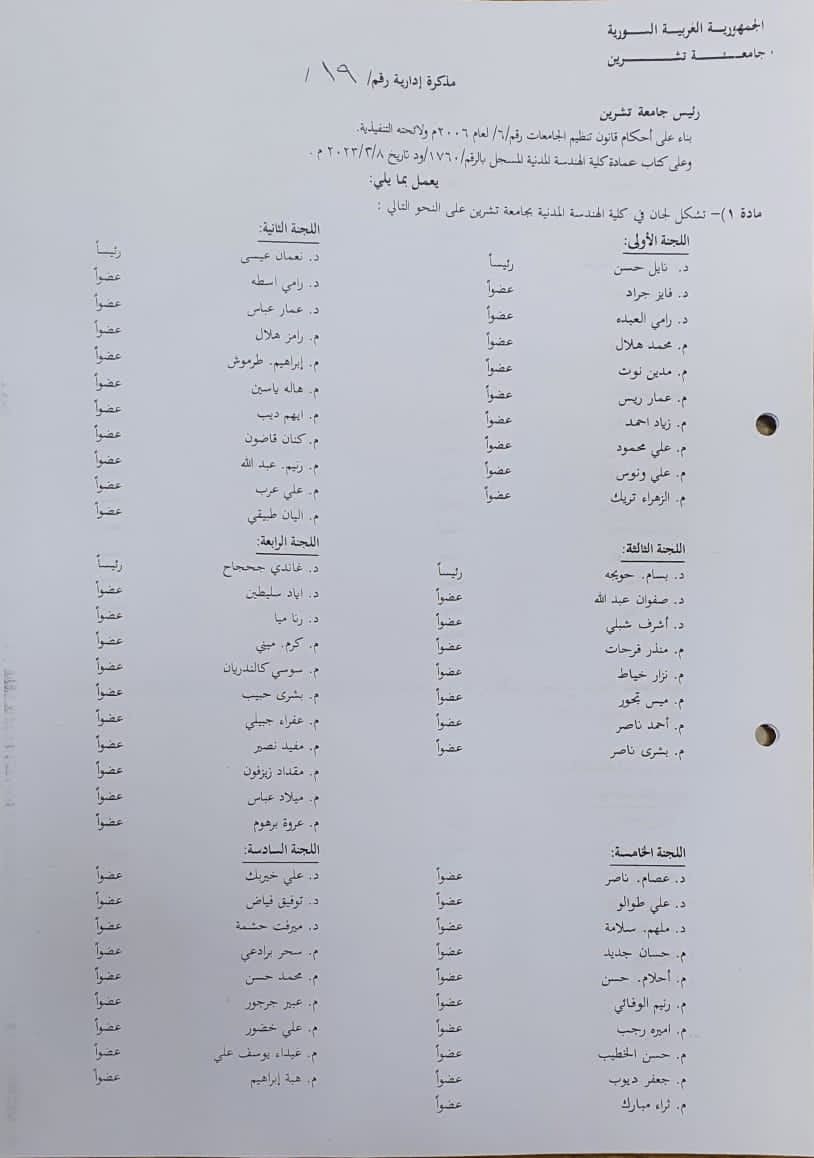 الجمهوريـة العربية الســورية
جامعــــة تشـــــرين
مذكرة إدارية رقم/ ١٩ /
رئيس جامعة تشرين
بناء على أحكام قانون تنظيم الجامعات رقم/٦/ لعام ٢٠٠٦م ولائحته التنفيذية.
وعلى كتاب عمادة كلية الهندسة المدنية المسجل بالرقم/١٧٦٠/ود تاريخ ٢٠٢٣/٣/٨ م .
يعمل بما يلي:
مادة ١)– تشكل لجان في كلية الهندسة المدنية بجامعة تشرين على النحو التالي :
اللجنة الأولى:
د. نايل حسن رئيساً
د. فايز جراد عضواً
د. رامي العبده عضواً
م. محمد هلال عضواً
م. مدين نوت عضواً
م. عمار ريس عضواً
م. زياد احمد عضواً
م. علي محمود عضواً
م. علي ونوس عضواً
م. الزهراء تريك عضواً
اللجنة الثانية:
د. نعمان عيسى رئيساً
د. رامي اسطه عضواً
د. عمار عباس عضواً
م. رامز هلال عضواً
م. إبراهيم. طرموش عضواً
م. هاله ياسين عضواً
م. ايهم ديب عضواً
م. كنان قاضون عضواً
م. رنيم. عبد الله عضواً
م. علي عرب عضواً
م. اليان طبيقي عضواً
اللجنة الثالثة:
د. بسام. حويجه رئيساً
د. صفوان عبد الله عضواً
د. أشرف شبلي عضواً
م. منذر فرحات عضواً
م. نزار خياط عضواً
م. ميس تجور عضواً
م. أحمد ناصر عضواً
م. بشرى ناصر عضواً
اللجنة الرابعة:
د. غاندي جحجاح رئيساً
د. اياد سليطين عضواً
د. رنا ميا عضواً
م. كرم. ميني عضواً
م. سوسي كالندريان عضواً
م. بشرى حبيب عضواً
م. عفراء جبيلي عضواً
م. مفيد نصير عضواً
م. مقداد زيزفون عضواً
م. ميلاد عباس عضواً
م. عروة برهوم عضواً
اللجنة الخامسة:
د. عصام. ناصر عضواً
د. علي طوالو عضواً
د. ملهم. سلامة عضواً
م. حسان جديد عضواً
م. أحلام. حسن عضواً
م. رنيم الوفائي عضواً
م. اميره رجب عضواً
م. حسن الخطيب عضواً
م. جعفر ديوب عضواً
م. ثراء مبارك عضواً
اللجنة السادسة:
د. علي خيربك عضواً
د. توفيق فياض عضواً
د. ميرفت حشمة عضواً
م. سحر برادعي عضواً
م. محمد حسن عضواً
م. عبير جرجور عضواً
م. علي خضور عضواً
م. غيداء يوسف علي عضواً
م. هبة إبراهيم عضواً